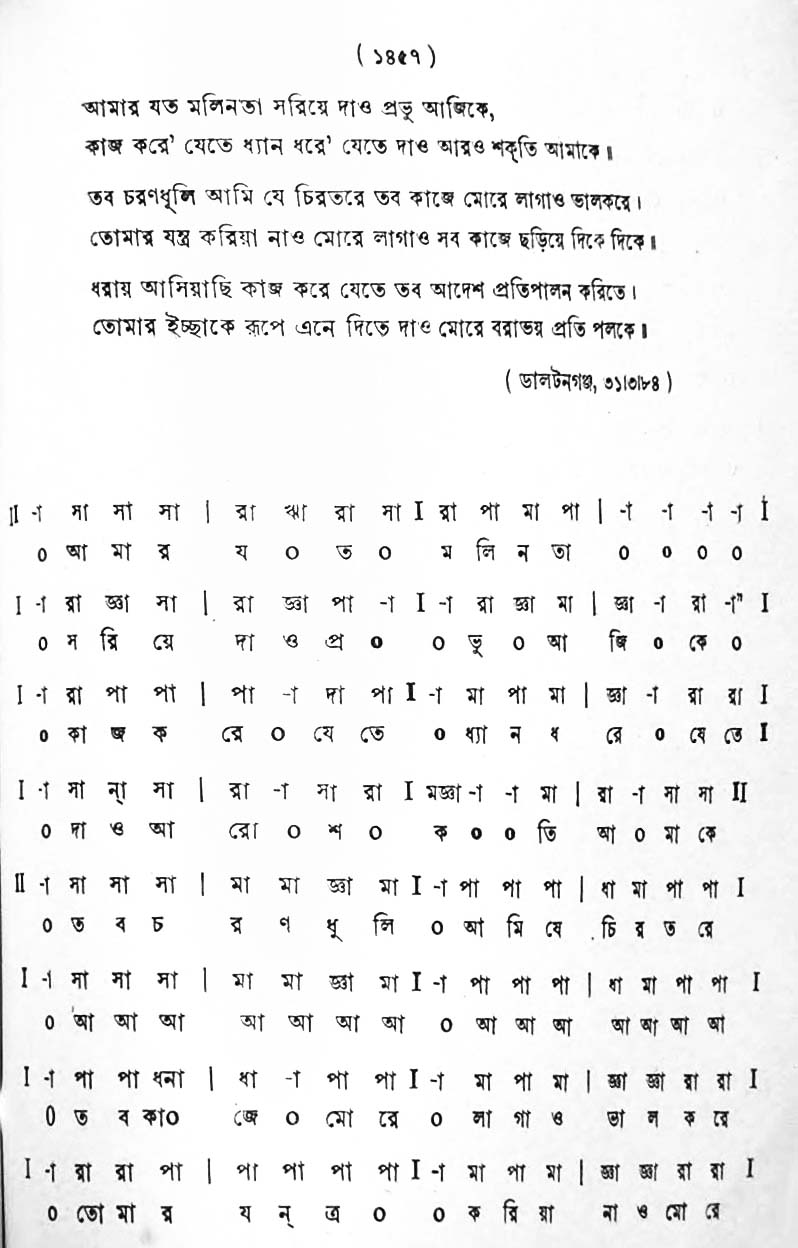 ( ১৪৫৭ )
আমার যত মলিনতা সরিয়ে দাও প্রভু আজিকে,
কাজ করে' যেতে ধ্যান ধরে' যেতে দাও আরও শক্‌তি আমাকে॥
তব চরণধূলি আমি যে চিরতরে তব কাজে মোরে লাগাও ভালকরে।
তোমার যন্ত্র করিয়া নাও মোরে লাগাও সব কাজে ছড়িয়ে দিকে দিকে॥
ধরায় আসিয়াছি কাজ করে যেতে তব আদেশ প্রতিপালন করিতে।
তোমার ইচ্ছাকে রূপে এনে দিতে দাও মোরে বরাভয় প্রতি পলকে॥
( ডালটনগঞ্জ, ৩১।৩।৮৪ )
II -া সা সা সা | রা ঋা রা সা I রা পা মা পা | -া -া -া -া I
০ আ মা র য ০ ত ০ ম লি ন তা ০ ০ ০ ০
I -া রা জ্ঞা সা | রা জ্ঞা পা -া I -া রা জ্ঞা মা | জ্ঞা -া রা -া" I
০ স রি য়ে দা ও প্র ০ ০ ভু ০ আ জি ০ কে ০
I -া রা পা পা | পা -া দা পা I -া মা পা মা | জ্ঞা -া রা রা I
০ কা জ ক রে ০ যে তে ০ ধ্যা ন ধ রে ০ যে তে I
I -া সা ন্‌া সা | রা -া সা রা I মজ্ঞা -া -া মা | রা -া সা সা II
০ দা ও আ রো ০ শ ০ ক ০ ০ তি আ ০ মা কে
II -া সা সা সা | মা মা জ্ঞা মা I -া পা পা পা | ধা মা পা পা I
০ ত ব চ র ণ ধূ লি ০ আ মি যে চি র ত রে
I -া সা সা সা | মা মা জ্ঞা মা I -া পা পা পা | ধা মা পা পা I
০ আ আ আ আ আ আ আ ০ আ আ আ আ আ আ আ
I -া পা পা ধনা | ধা -া পা পা I -া মা পা মা | জ্ঞা জ্ঞা রা রা I
০ ত ব কা০ জে ০ মো রে ০ লা গা ও ভা ল ক রে
I -া রা রা পা | পা পা পা পা I -া মা পা মা | জ্ঞা জ্ঞা রা রা I
০ তো মা র য ন্ ত্র ০ ০ ক রি য়া না ও মো রে